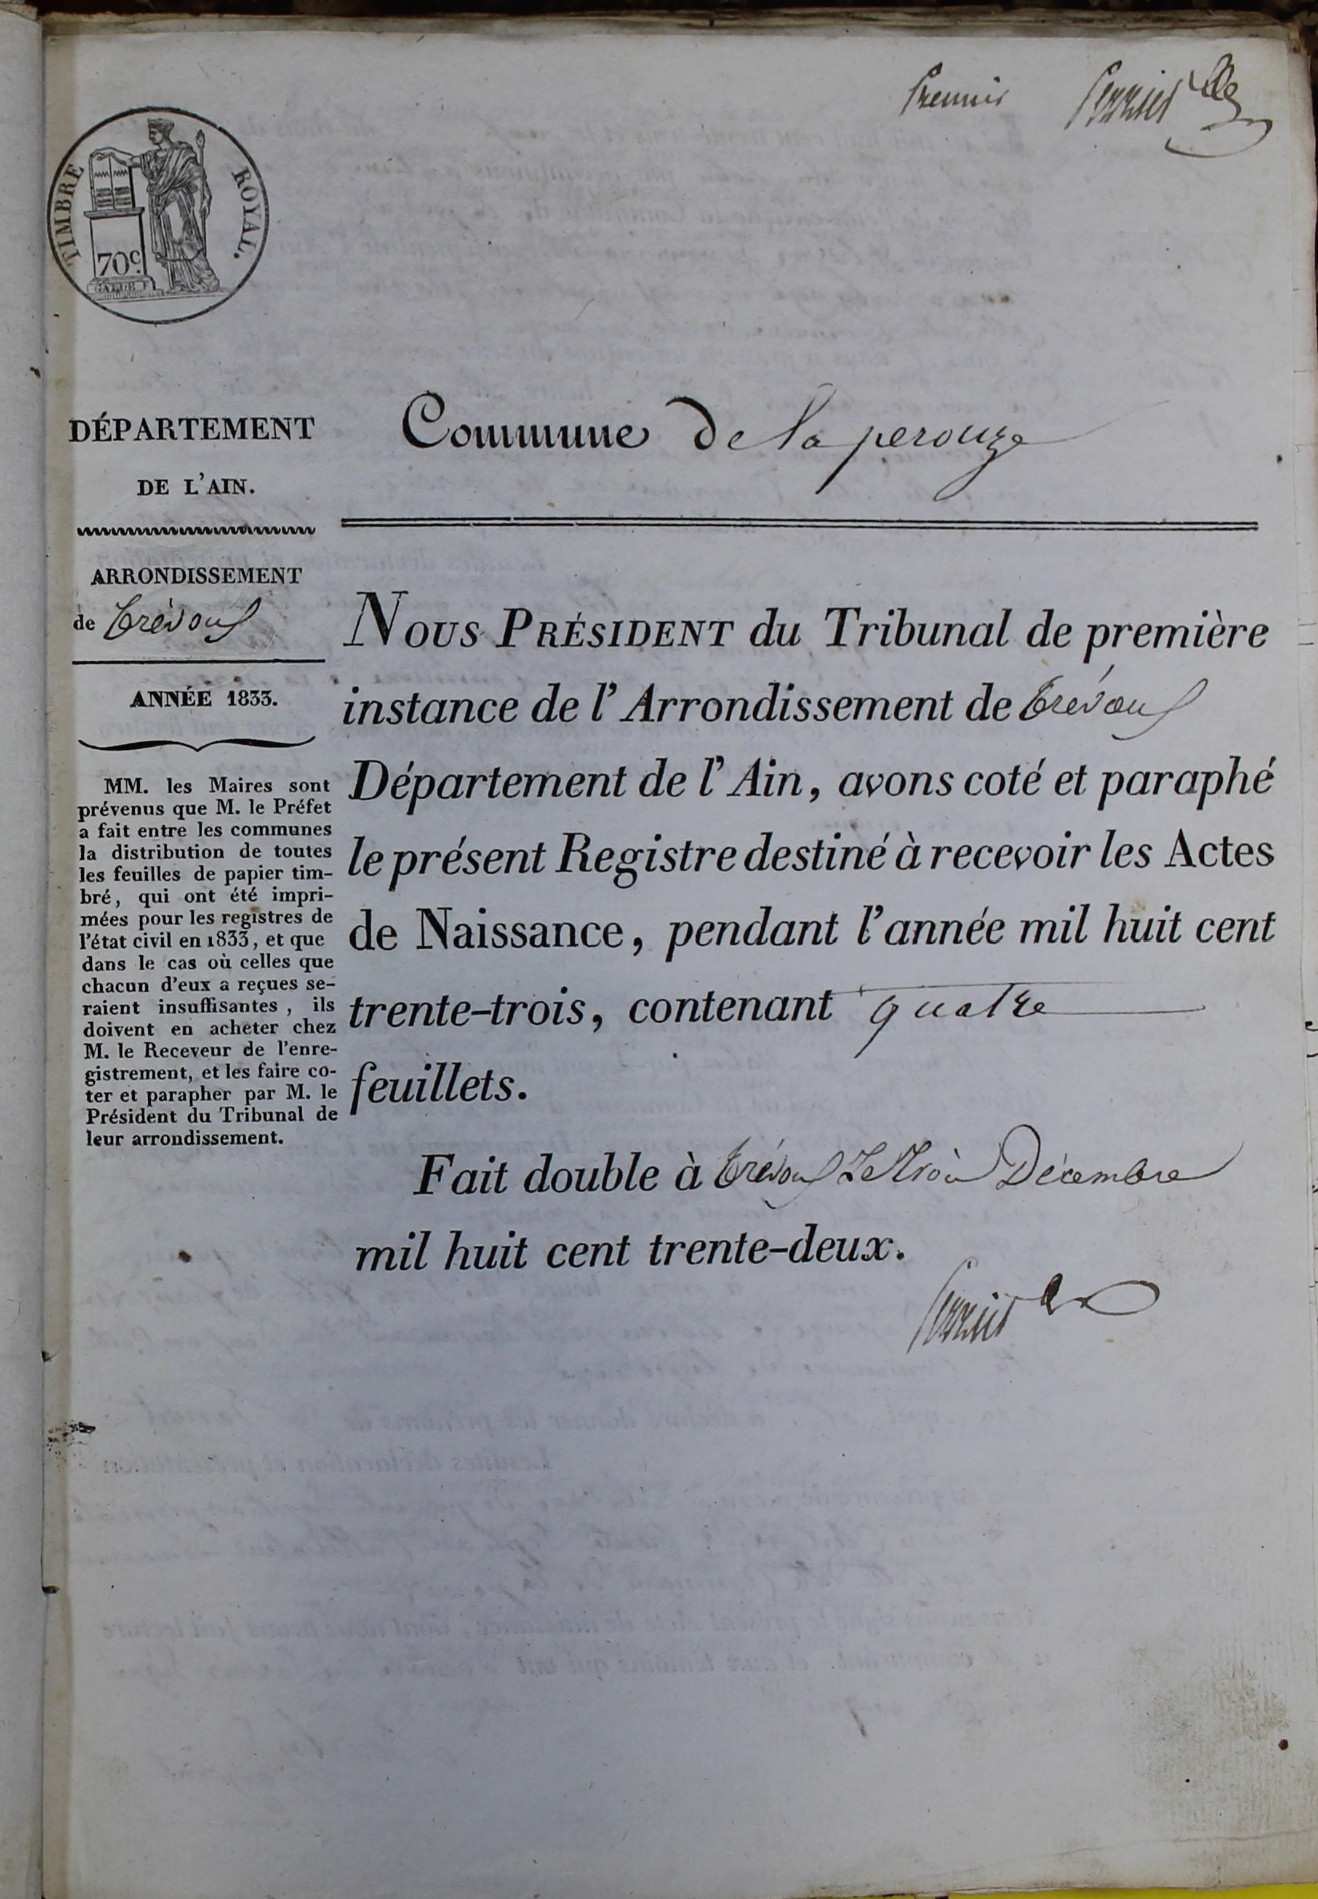 Premier
TIMBRE ROYAL.
70c.
DÉPARTEMENT
DE L'AIN.
ARRONDISSEMENT
de Trévoux
ANNÉE 1833.
MM. les Maires sont
prévenus que M. le Préfet
a fait entre les communes
la distribution de toutes
les feuilles de papier tim-
bré, qui ont été impri-
mées pour les registres de
l'état civil en 1833, et que
dans le cas où celles que
chacun d'eux a reçues se-
raient insuffisantes, ils
doivent en acheter chez
M. le Receveur de l'enre-
gistrement, et les faire co-
ter et parapher par M. le
Président du Tribunal de
leur arrondissement.
Commune de la perouze
NOUS PRÉSIDENT du Tribunal de première
instance de l'Arrondissement de Trévoux
Département de l'Ain, avons coté et paraphé
le présent Registre destiné à recevoir les Actes
de Naissance, pendant l'année mil huit cent
trente-trois, contenant quatre
feuillets.
Fait double à Trévoux Le Décembre
mil huit cent trente-deux.